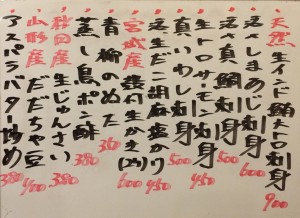 天然生インド鮪トロ刺身 900
活〆しまあじ刺身 600
活〆真鯛刺身 500
生トロサーモン刺身 450
真いわし刺身 500
活生だこ胡麻塩かけ 450
宮城産殻付生かき(2ケ) 600
青柳のぬた 380
蒸し鳥ポン酢 380
秋田産生じゅんさい 380
山形産だだちゃ豆 400
アスパラバター炒め 380